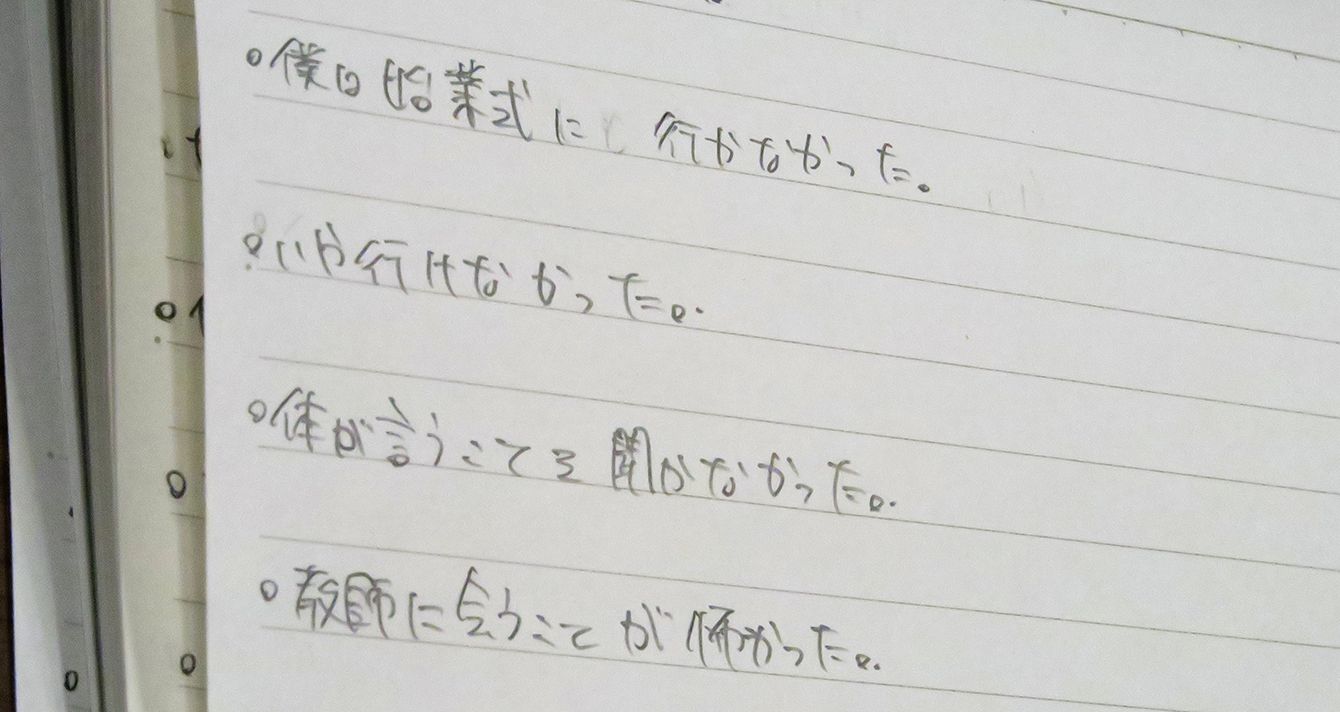 ○僕は始業式に行かなかった。
○いや行けなかった。
○体が言うことを聞かなかった。
○教師に会うことが怖かった。